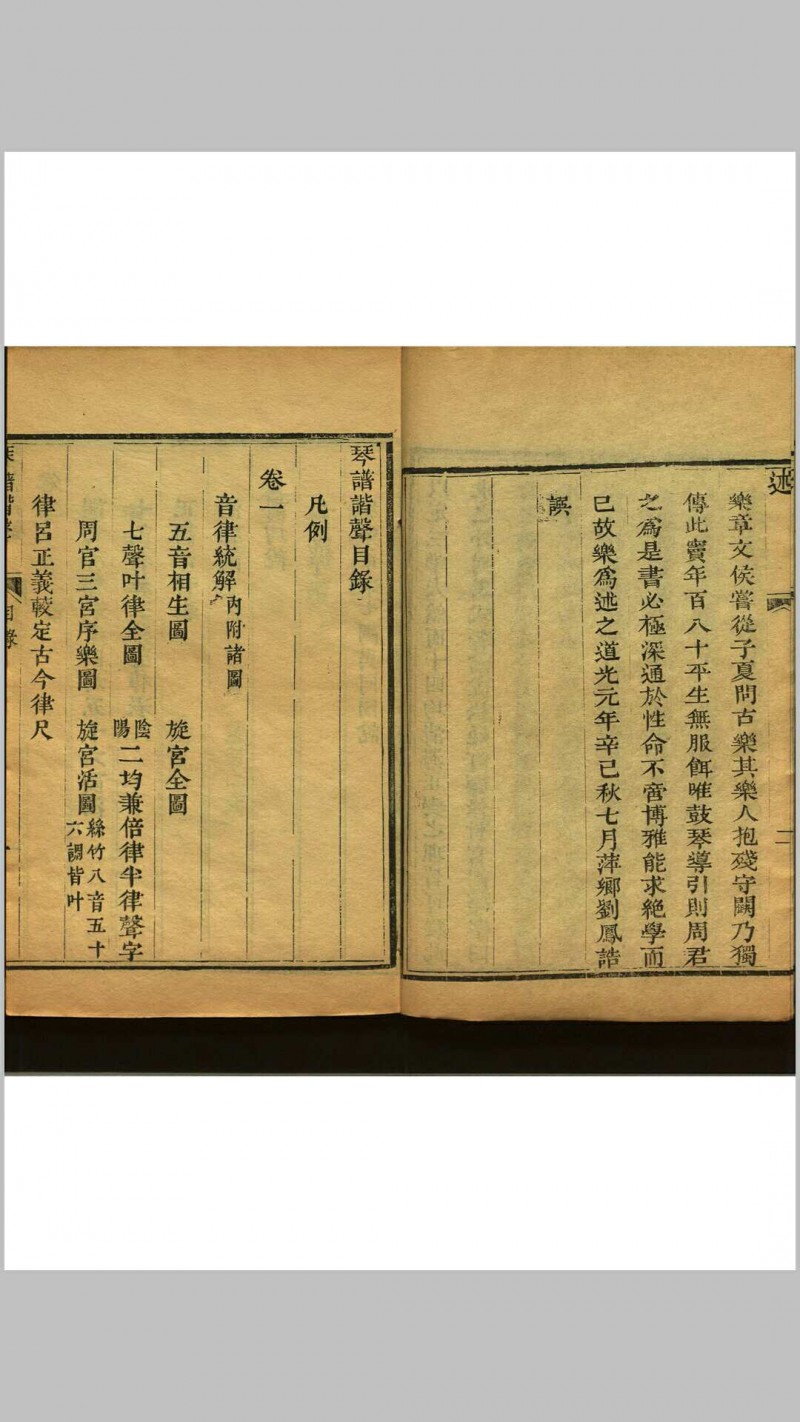 述
二
樂章文侯嘗從子夏問古樂其樂人抱殘守闕乃獨
傳此竇年百八十平生無服餌唯鼓琴導引則周君
之為是書必極深通於性命不啻博雅能求絕學而
已故樂為述之道光元年辛巳秋七月萍鄉劉鳳誥
誤
琴譜諧聲目錄
凡例
卷一
音律統解內附諸圖
五音相生圖 旋宮全圖
七聲叶律全圖 陰陽二均兼倍律半律聲字
周官三宮序樂圖 旋宮活圖絲竹八音五十六調皆叶
律呂正義較定古今律尺
目錄